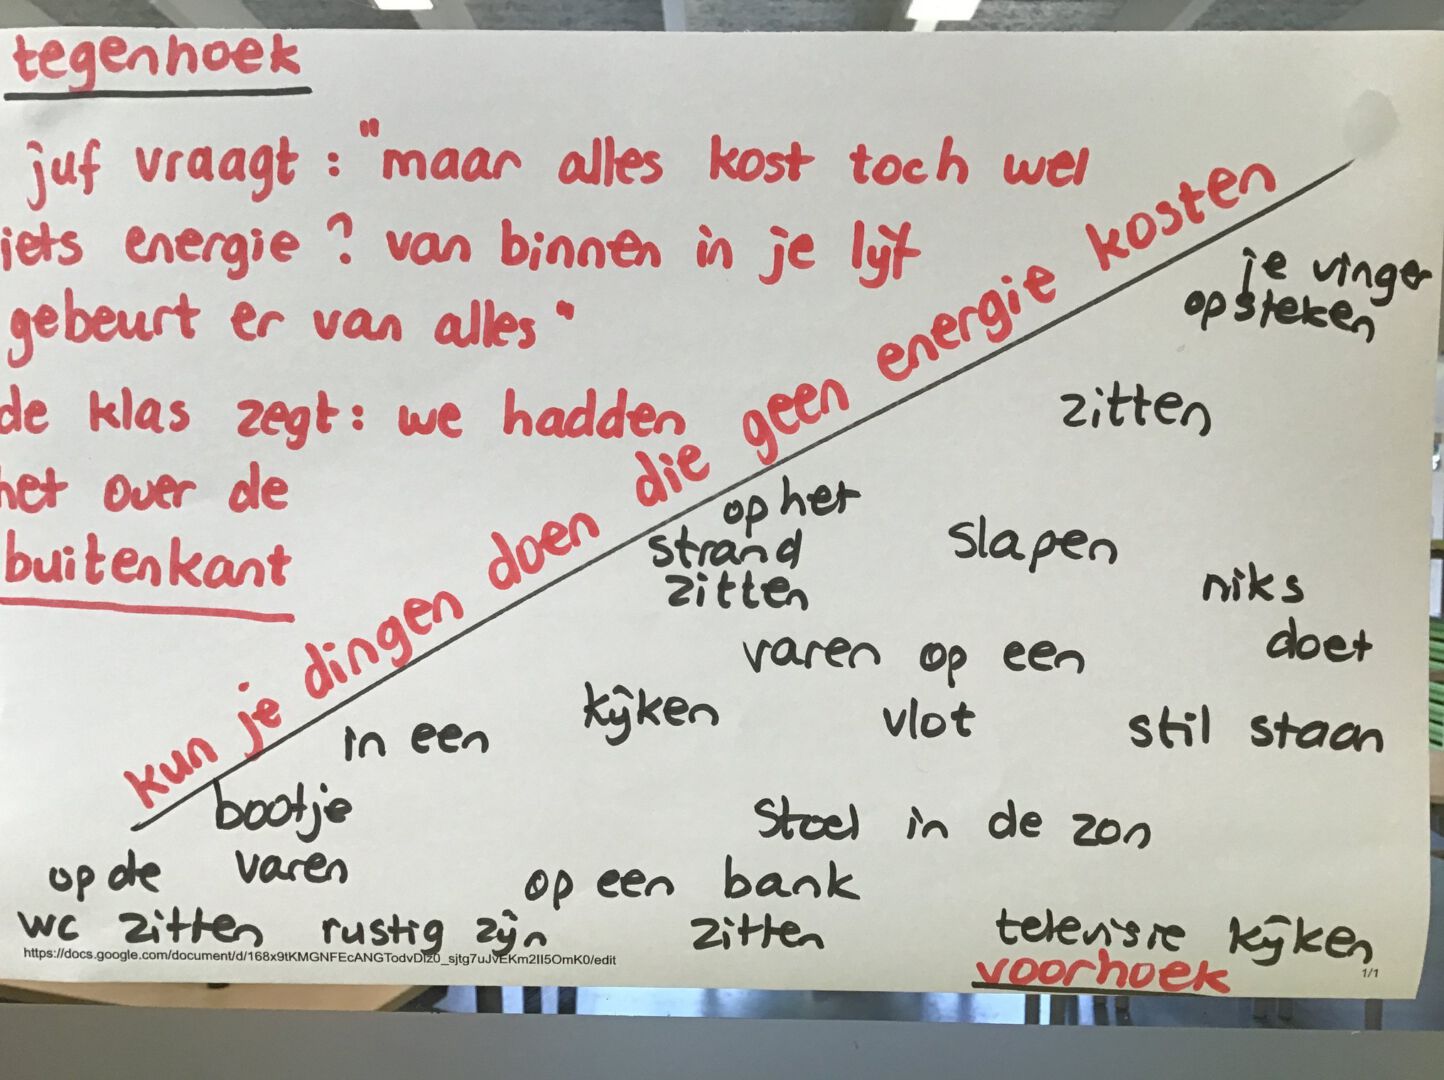 tegenhoek
juf vraagt : "maar alles kost toch wel
iets energie ? van binnen in je lijf
gebeurt er van alles"
de klas zegt : we hadden
het over de
buitenkant
kun je dingen doen die geen energie kosten
je vinger
opsteken
zitten
op het
strand
zitten
slapen
niks
doet
varen op een
vlot
kijken
stil staan
in een
bootje
varen
stoel in de zon
op de
wc zitten
rustig zijn
op een bank
zitten
televisie kijken
voorhoek
https://docs.google.com/document/d/168x9tKMGNFEcANGTodvDlz0_sjtg7uJVEKm2II5OmK0/edit
1/1